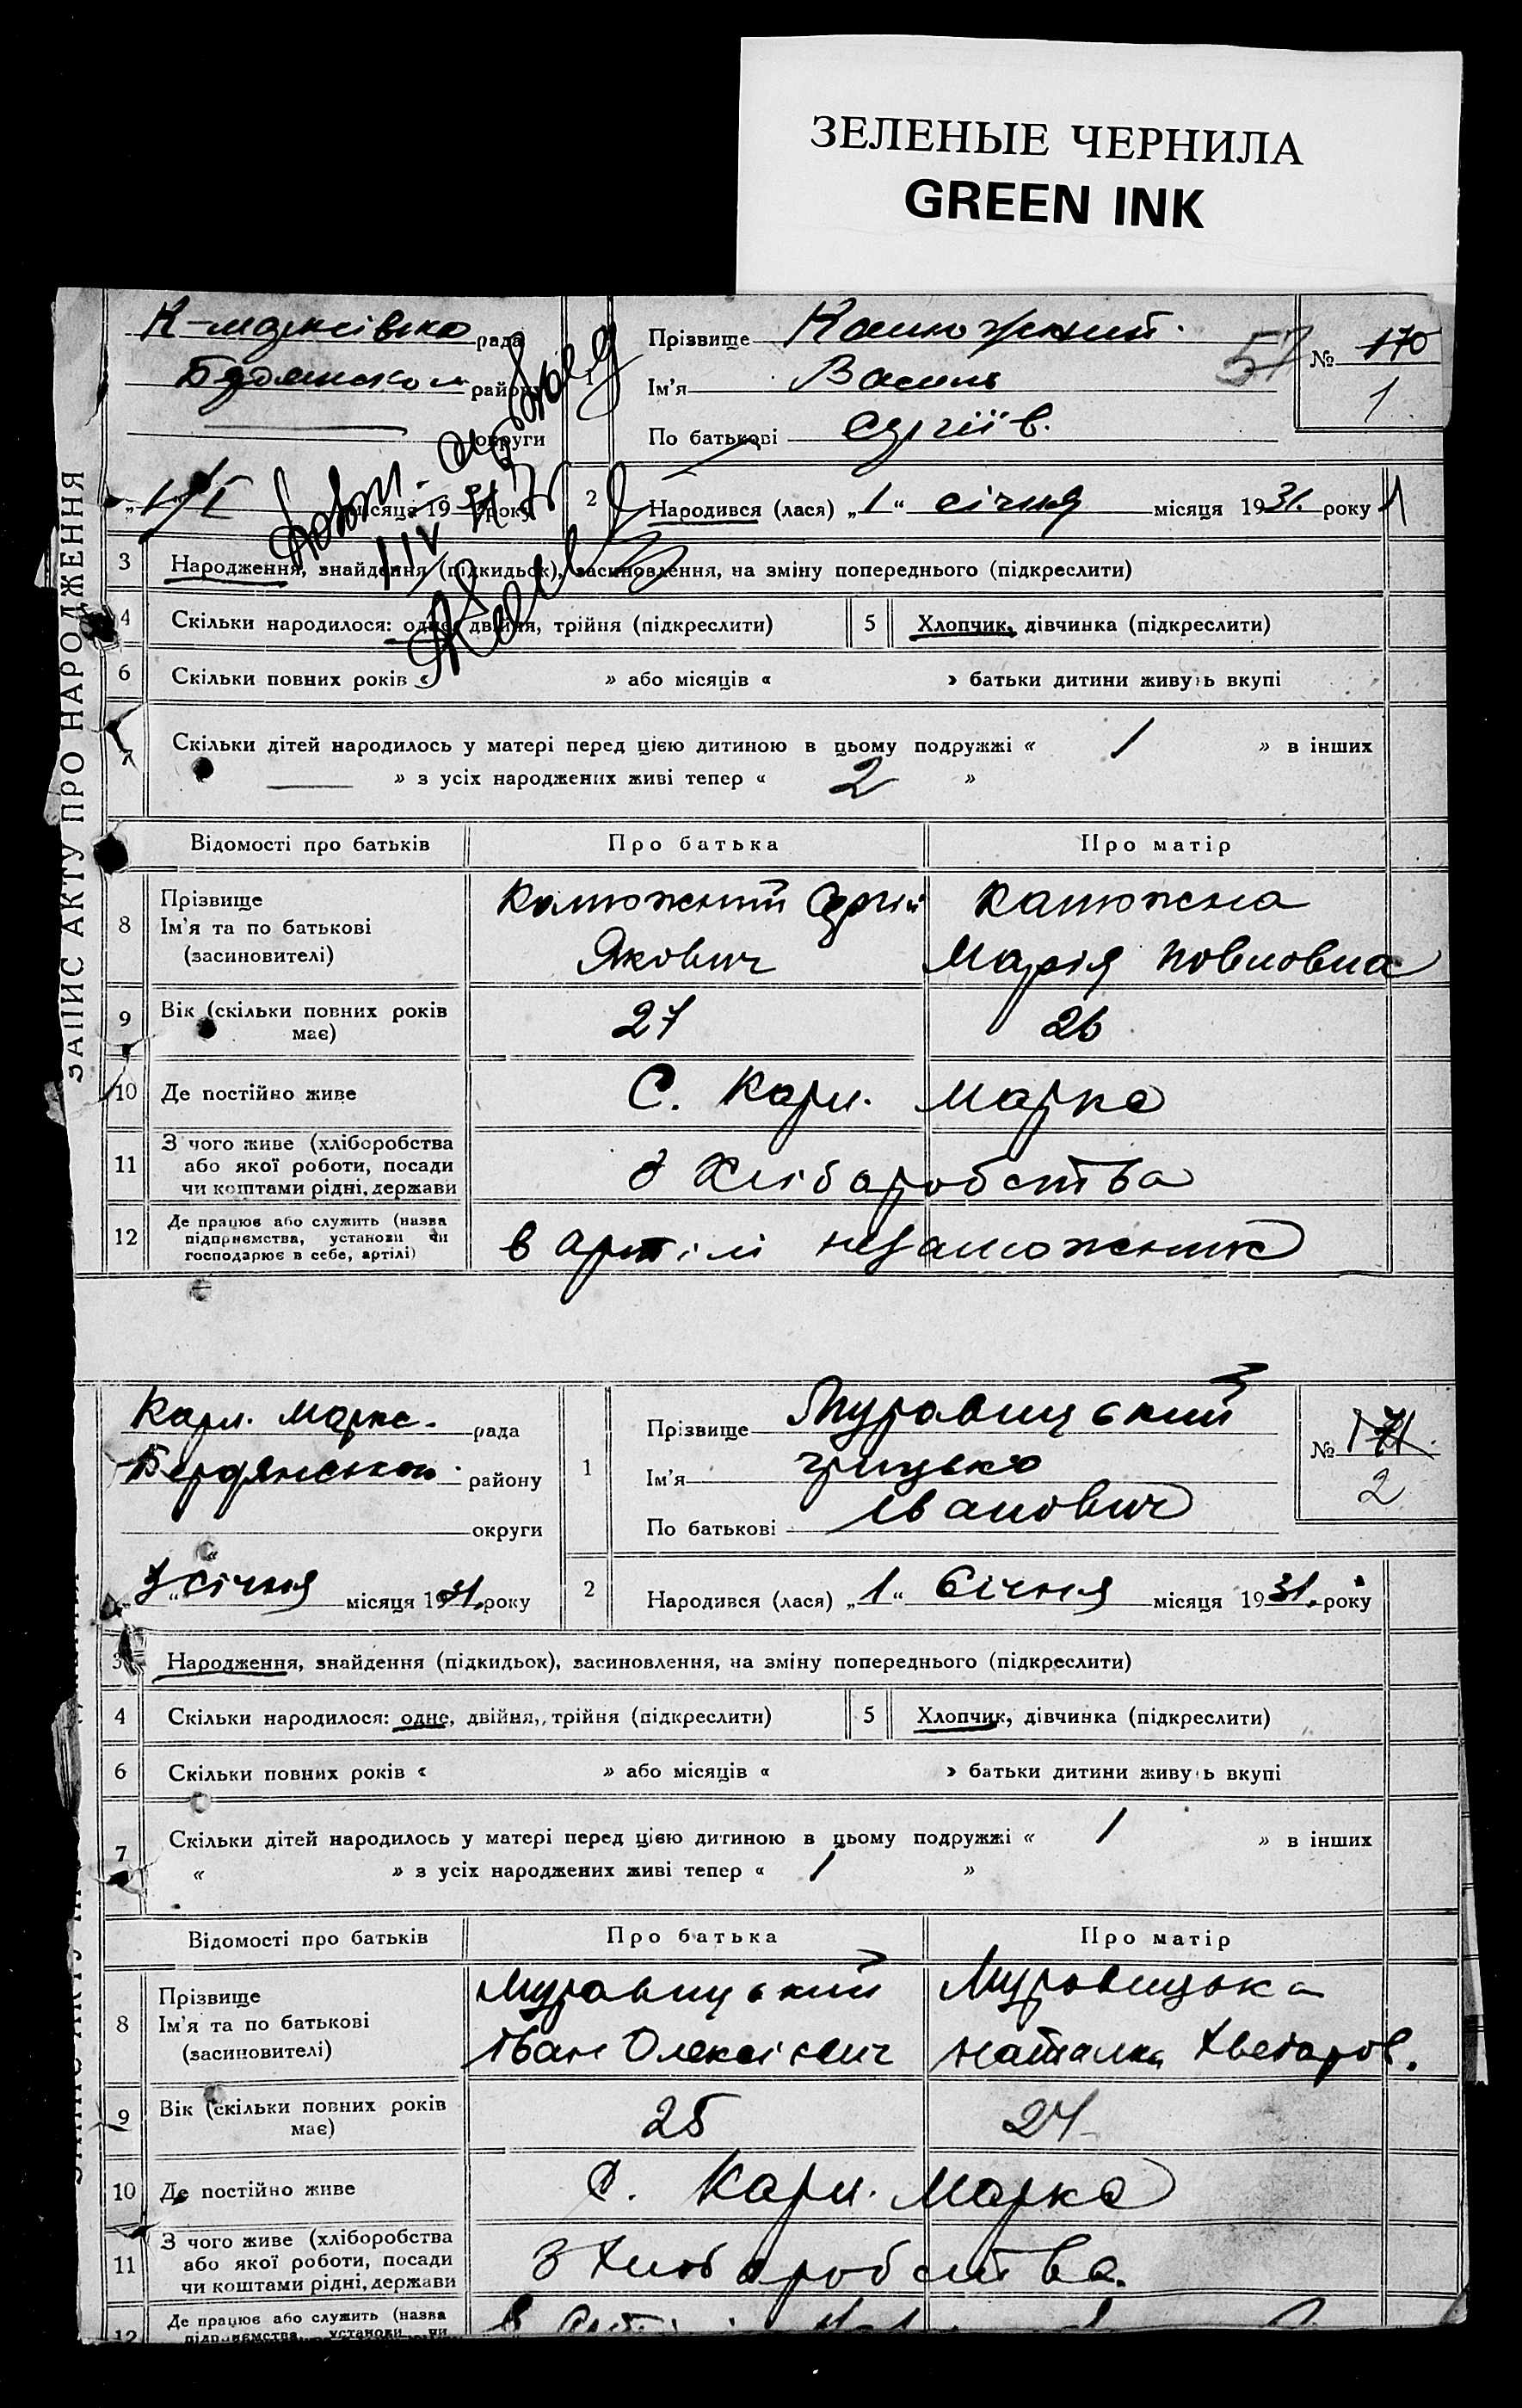 ЗЕЛЕНЫЕ ЧЕРНИЛА
GREEN INK
ЗАПИС АКТУ ПРО НАРОДЖЕННЯ
рада
району
округи
місяця 19 31 року
1
Прізвище
Ім'я Василь
По батькові Сергіїв.
57
№ 170
1
2 Народився (лася) „1“ січня місяця 1931. року
3 Народження, знайдення (підкидьок), засиновлення, на зміну попереднього (підкреслити)
4 Скільки народилося: одне, двійня, трійня (підкреслити) 5 Хлопчик, дівчинка (підкреслити)
6 Скільки повних років « » або місяців « » батьки дитини живуть вкупі
7 Скільки дітей народилось у матері перед цією дитиною в цьому подружжі « 1 » в інших
« — » з усіх народжених живі тепер « 2 »
Відомості про батьків Про батька Про матір
8 Прізвище
Ім'я та по батькові
(засиновителі)
Сергій
Якович
Марія Повловна
9 Вік (скільки повних років має) 27 26
10 Де постійно живе С. Карл. Маркс
11 З чого живе (хліборобства
або якої роботи, посади
чи коштами рідні, держави
з Хлібаробства
12 Де працює або служить (назва
підприємства, установи чи
господарює в себе, артілі)
в артілі незаможник
Карл. Маркс. рада
Бердянського району
округи
7 „ січня місяця 1931. року
1
Прізвище Муравицький
Ім'я Грицько
По батькові Іванович
№ 171
2
2 Народився (лася) „1“ Січня місяця 1931. року
3 Народження, знайдення (підкидьок), засиновлення, на зміну попереднього (підкреслити)
4 Скільки народилося: одне, двійня, трійня (підкреслити) 5 Хлопчик, дівчинка (підкреслити)
6 Скільки повних років « » або місяців « » батьки дитини живуть вкупі
7 Скільки дітей народилось у матері перед цією дитиною в цьому подружжі « 1 » в інших
« » з усіх народжених живі тепер « 1 »
Відомості про батьків Про батька Про матір
8 Прізвище
Ім'я та по батькові
(засиновителі)
Муравицький
Іван Олексієвич
Муровицька
Наталка Хведаров.
9 Вік (скільки повних років має) 25 24
10 Де постійно живе С. Карл. Маркс
11 З чого живе (хліборобства
або якої роботи, посади
чи коштами рідні, держави
З Хлібаробства.
12 Де працює або служить (назва
підприємства, установи чи